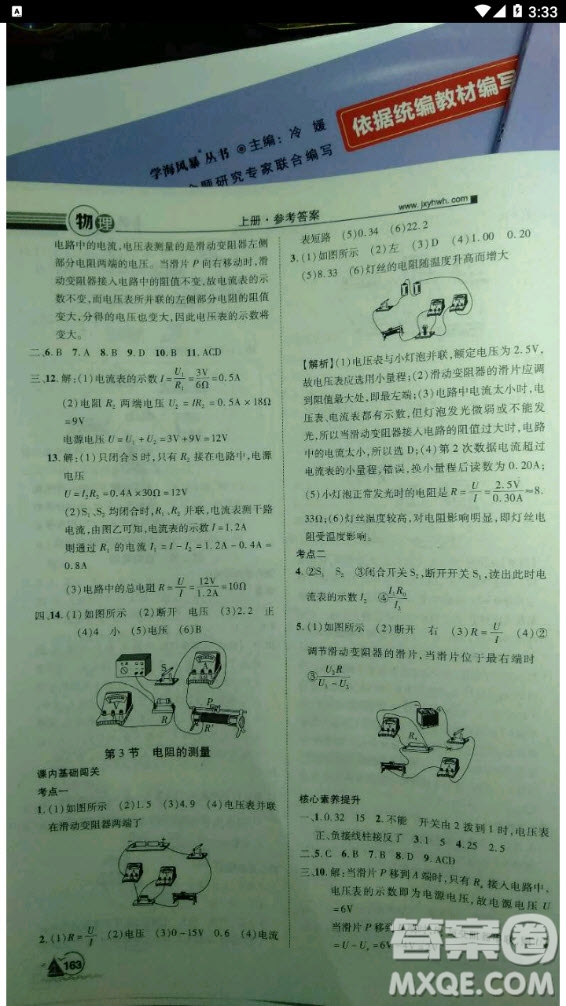 A
3:33
依据统编教材编写
学海风暴®丛书 ◎主编：冷 媛
题研究专家联合编写
物理
上册·参考答案
www.jxyhwh.com
电路中的电流，电压表测量的是滑动变阻器左侧
部分电阻两端的电压。当滑片P向右移动时，滑
动变阻器接入电路中的阻值不变，故电流表的示
数不变，而电压表所并联的左侧部分电阻的阻值
变大，分得的电压也变大，因此电压表的示数将
变大。
二、6. B 7. A 8. B 9. D 10. B 11. ACD
三、12. 解：(1)电流表的示数 I=U₁/R₁=3V/6Ω=0.5A
(2)电阻 R₂ 两端电压 U₂=IR₂=0.5A×18Ω
=9V
电源电压 U=U₁+U₂=3V+9V=12V
13. 解：(1)只闭合S时，只有 R₂ 接在电路中，电源
电压
U=I₂R₂=0.4A×30Ω=12V
(2)S₁、S₂ 均闭合时，R₁、R₂ 并联，电流表测干路
电流，由图乙可知，电流表的示数 I=1.2A
则通过 R₁ 的电流 I₁=I-I₂=1.2A-0.4A=
0.8A
(3)电路中的总电阻 R=U/I=12V/1.2A=10Ω
四、14. (1)如图所示 (2)断开 电压 (3)2.2 正
(4)4 小 (5)电压 (6)B
S
P
R
R'
第3节 电阻的测量
课内基础闯关
考点一
1. (1)如图所示 (2)1.5 (3)4.9 (4)电压表并联
在滑动变阻器两端了
2. (1)R=U/I (2)电压 (3)0~15V 0.6 (4)电流
163
表短路 (5)0.34 (6)22.2
3. (1)如图所示 (2)左 (3)D (4)1.00 0.20
(5)8.33 (6)灯丝的电阻随温度升高而增大
【解析】(1)电压表与小灯泡并联，额定电压为2.5V，
故电压表应选用小量程；(2)滑动变阻器的滑片应调
到阻值最大处，即最左端；(3)电路中电流太小时，电
压表、电流表都有示数，但灯泡发光微弱或不能发
光，所以当滑动变阻器接入电路的阻值过大时，电路
中的电流太小，所以选D；(4)第2次数据电流超过
电流表的小量程，错误，换小量程后读数为0.20A；
(5)小灯泡正常发光时的电阻是 R=U/I=2.5V/0.30A≈8.
33Ω；(6)灯丝温度较高，对电阻影响明显，即灯丝电
阻受温度影响。
考点二
4. ②S₁ S₂ ③闭合开关S₁，断开开关S₂，读出此时电
流表的示数 I₂ ④I₁R₀/I₂
5. (1)如图所示 (2)断开 右 (3)R=U/I (4)②
调节滑动变阻器的滑片，当滑片位于最右端时
③U₂R/U₁-U₂
Rₓ
核心素养提升
一、1. 0.32 15 2. 不能 开关由2拨到1时，电压表
正、负接线柱接反了 3. 1 5 4. 25 2.5
二、5. C 6. B 7. B 8. D 9. ACD
三、10. 解：当滑片P移到A端时，只有 Rₓ 接入电路中，
电压表的示数即为电源电压，故电源电压为 U
=6V
当滑片P移
=U-Uₓ=6V
答案圈
MXQE.COM